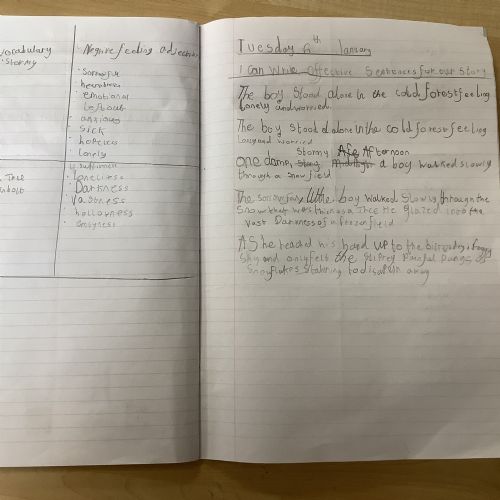 vocabulary
Stormy
Negative feeling adjectives
Sorrowful
heartbroken
emotional
left out
anxious
sick
hopeless
lonely
loneliness
Darkness
vastness
hollowness
Tuesday 6th January
I can write effective sentences for our story
The boy stood alone in the cold forest feeling
lonely and worried.
The boy stood alone in the cold forest feeling
lonely and worried
Stormy Afternoon
one damp, a boy walked slowly
through a snow field
The little boy walked slowly through the
snow that was thick as a tree He gazed into the
vast Darkness of a frozen field
As he reached his hand up to the
sky and only felt the Painful Pangs of
snowflakes away